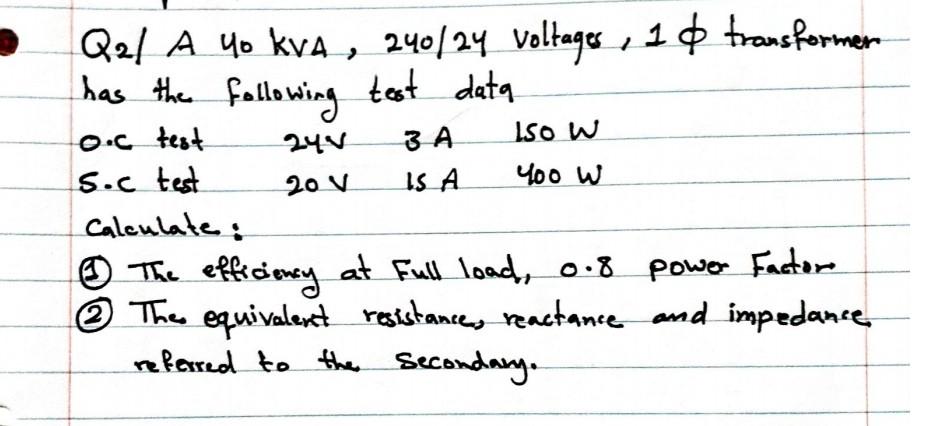 Q2/ A 40 kVA, 240/24 Voltages, 1 ϕ transformer
has the following test data
o.c test 24V 3 A 150 W
s.c test 20 V 15 A 400 W
Calculate:
① The efficiency at Full load, 0.8 power Factor
② The equivalent resistance, reactance and impedance
referred to the Secondary.